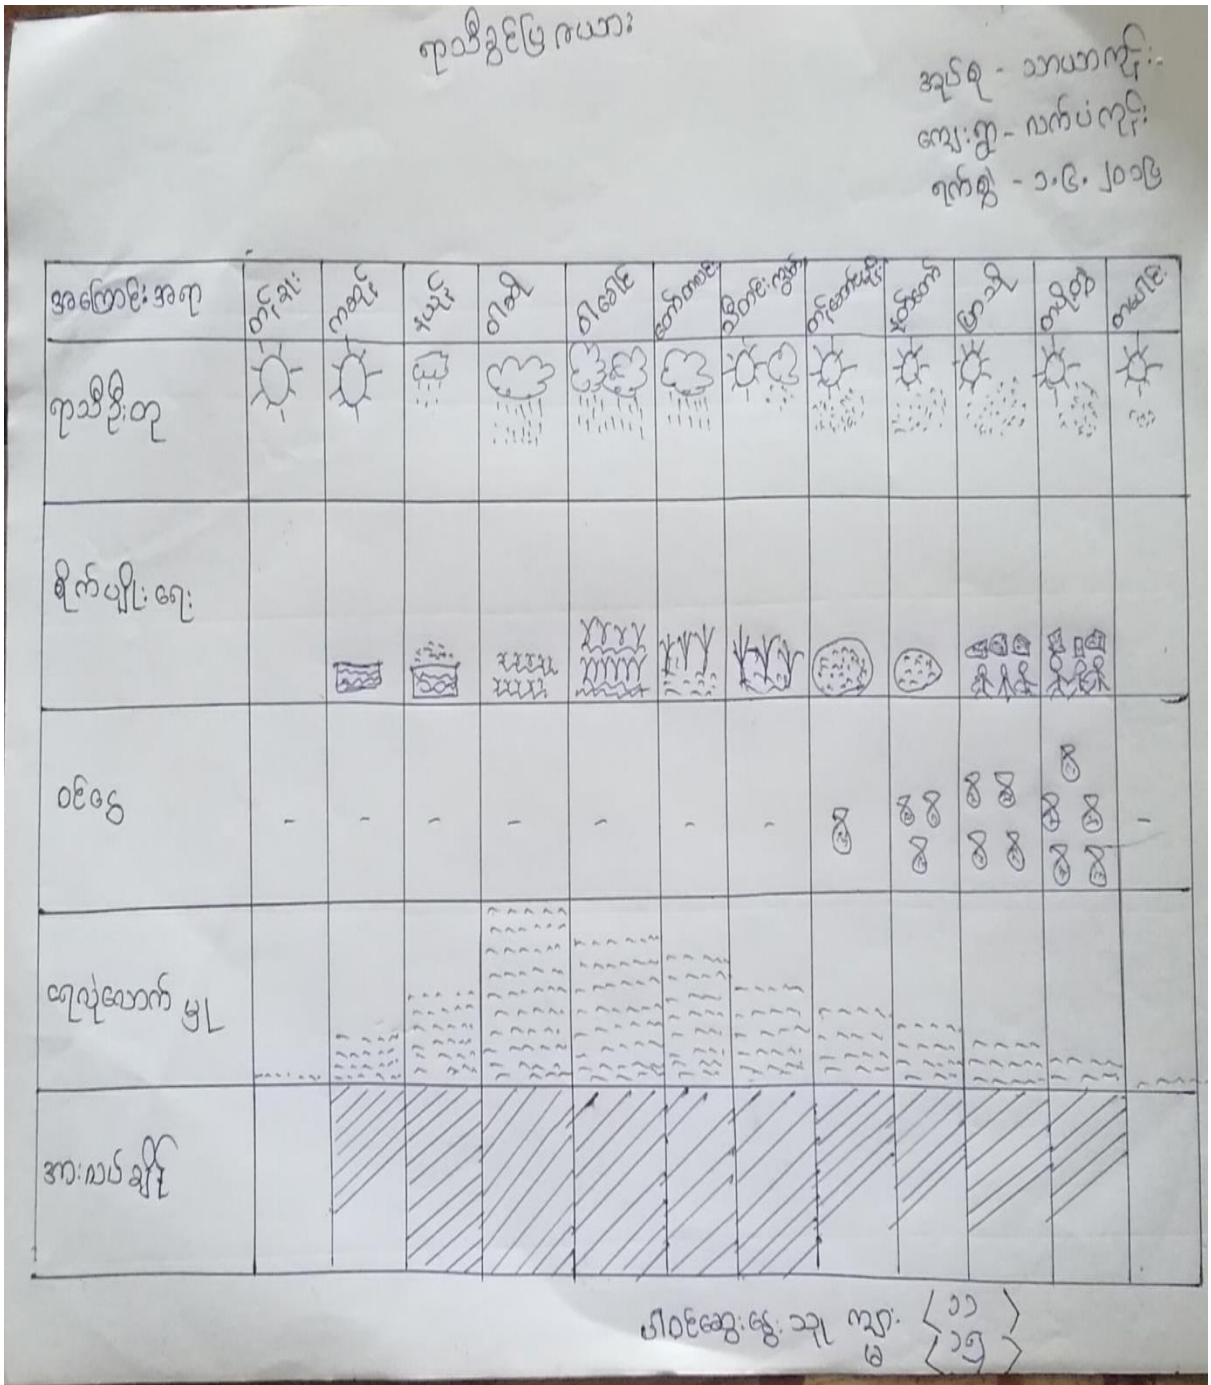 ရာသီခွင်ပြဇယား
အုပ်စု - သာယာကုန်း
ကျေးရွာ - လက်ပံကုန်း
ရက်စွဲ - ၁.၆.၂၀၁၆
အကြောင်းအရာ တန်ခူး ကဆုန် နယုန် ဝါဆို ဝါခေါင် တော်သလင်း သီတင်းကျွတ် တန်ဆောင်မုန်း နတ်တော် ပြာသို တပို့တွဲ တပေါင်း
ရာသီဦးတု
စိုက်ပျိုးရေး
ဝင်ငွေ - - - - - - - -
ရေလုံလောက်မှု
အားလပ်ချိန်
ပါဝင်ဆွေးနွေးသူ ကျား ၁၁
မ ၁၅